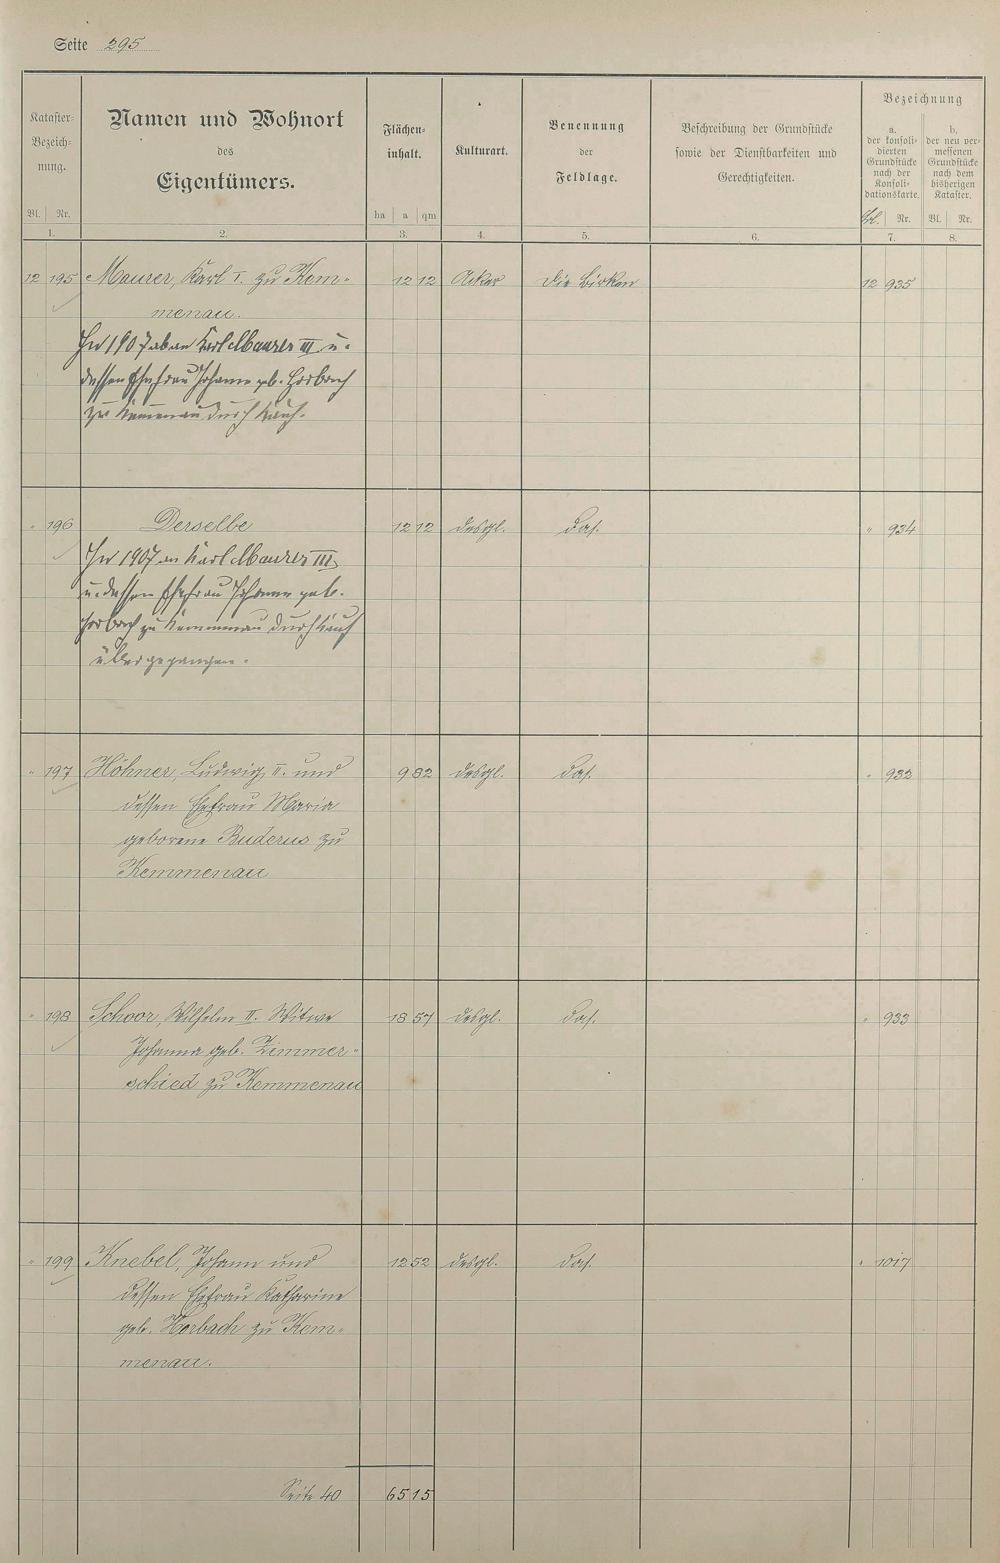 Seite 295
Kataster-
Bezeich-
nung.
Bl. Nr.
1.
Namen und Wohnort
des
Eigentümers.
2.
Flächen-
inhalt.
ha a qm
3.
Kulturart.
4.
Benennung
der
Feldlage.
5.
Beschreibung der Grundstücke
sowie der Dienstbarkeiten und
Gerechtigkeiten.
6.
Bezeichnung
a.
der konsoli-
dierten
Grundstücke
nach der
Konsoli-
dationskarte.
Bl. Nr.
7.
b.
der neu ver-
messenen
Grundstücke
nach dem
bisherigen
Kataster.
Bl. Nr.
8.
12 195 Maurer, Karl I. zu Kem- 12 12 Acker Die Birken 12 935
menau.
In 1907 ab an Karl Maurer III u.
dessen Ehefrau Johanna geb. Horbach
zu Kemmenau durch Kauf.
" 196 Derselbe 12 12 desgl. das. " 934
In 1907 an Karl Maurer III
u. dessen Ehefrau Johanna geb.
Horbach zu Kemmenau durch Kauf
übergegangen.
" 197 Höhner, Ludwig II. und 9 82 desgl. das. " 932
dessen Ehefrau Maria
geborene Buderus zu
Kemmenau
" 198 Schoor, Wilhelm II. Witwe 18 57 desgl. das. " 933
Johanna geb. Zimmer-
schied zu Kemmenau
" 199 Knebel, Johann und 12 52 desgl. das. " 1017
dessen Ehefrau Katharine
geb. Horbach zu Kem-
menau.
Seite 40 65 15